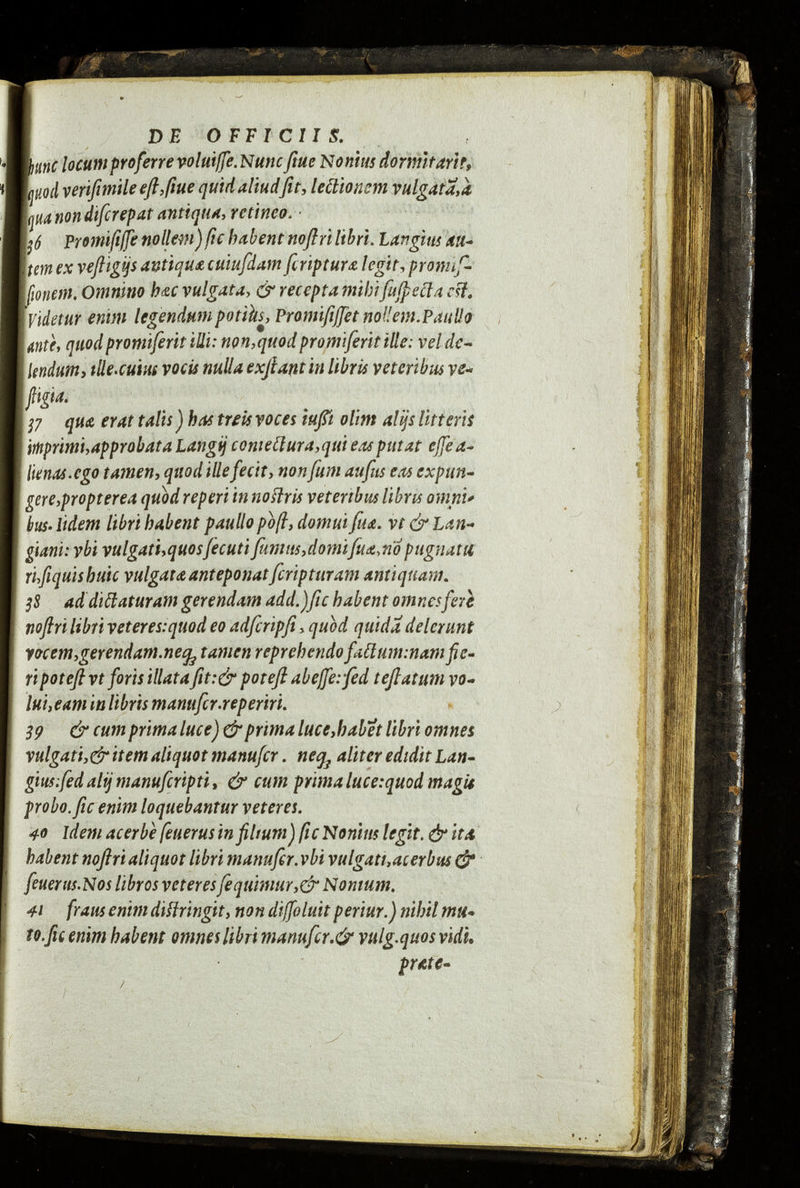 DE OFFICIIS.
hunc locum proferre voluiſſe. Nunc ſiue Nonius dormitarit,
quod veriſimile eſt, ſiue quid aliud ſit, lectionem vulgatã, à
qua non diſcrepat antiqua, retineo.
36 Promiſiſſe nollem) ſic habent noſtri libri. Langius au-
tem ex veſtigijs antiquæ cuiuſdam ſcripturæ legit, promiſ-
ſionem. Omnino hæc vulgata, & recepta mihi ſuſpecta eſt.
Videtur enim legendum potiùs, Promiſiſſet nollem. Paullo
antè, quod promiſerit illi: non, quod promiſerit ille: vel de-
lendum, ille. cuius vocis nulla exſtant in libris veteribus ve-
ſtigia.
37 quæ erat talis) has treis voces iuſſi olim alijs litteris
imprimi, approbata Langij coniectura, qui eas putat eſſe a-
lienas. ego tamen, quod ille fecit, non ſum auſus eas expun-
gere, propterea quòd reperi in noſtris veteribus libris omni-
bus. Iidem libri habent paullo pòſt, domui ſuæ. vt & Lan-
giani: vbi vulgati, quos ſecuti ſumus, domi ſuæ, nõ pugnatu
ri, ſi quis huic vulgatæ anteponat ſcripturam antiquam.
38 ad dictaturam gerendam add.) ſic habent omnes ferè
noſtri libri veteres: quod eo adſcripſi, quòd quidã delerunt
vocem, gerendam. neq; tamen reprehendo factum: nam fie-
ri poteſt vt foris illata ſit: & poteſt abeſſe: ſed teſtatum vo-
lui, eam in libris manuſcr. reperiri.
39 & cum prima luce) & prima luce, habẽt libri omnes
vulgati, & item aliquot manuſcr. neq; aliter edidit Lan-
gius: ſed alij manuſcripti, & cum prima luce: quod magis
probo. ſic enim loquebantur veteres.
40 Idem acerbè ſeuerus in filium) ſic Nonius legit. & ita
habent noſtri aliquot libri manuſcr. vbi vulgati, acerbus &
ſeuerus. Nos libros veteres ſequimur, & Nonium.
41 fraus enim diſtringit, non diſſoluit periur.) nihil mu-
to. ſic enim habent omnes libri manuſcr. & vulg. quos vidi.
præte-